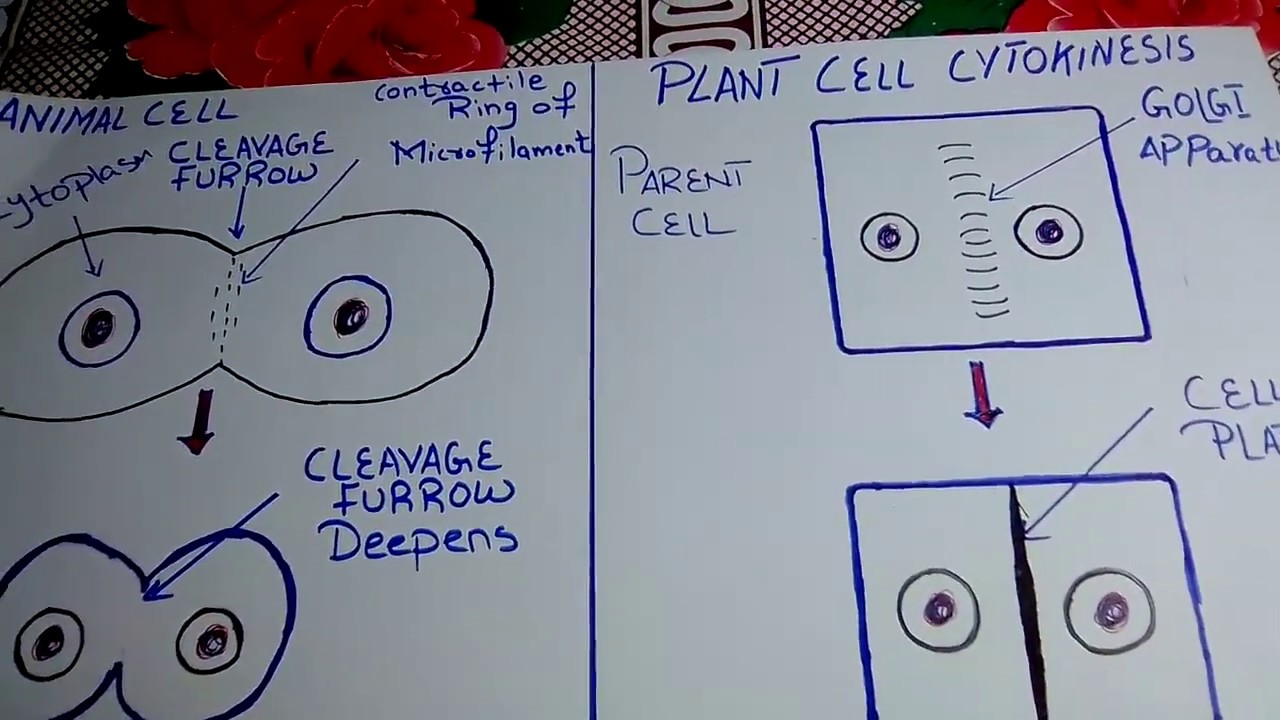 ANIMAL CELL
Contractile
Ring of
Microfilament
CLEAVAGE
FURROW
ytoplasm
CLEAVAGE
FURROW
Deepens
PLANT CELL CYTOKINESIS
PARENT
CELL
GOLGI
APParat
CELL
PLA